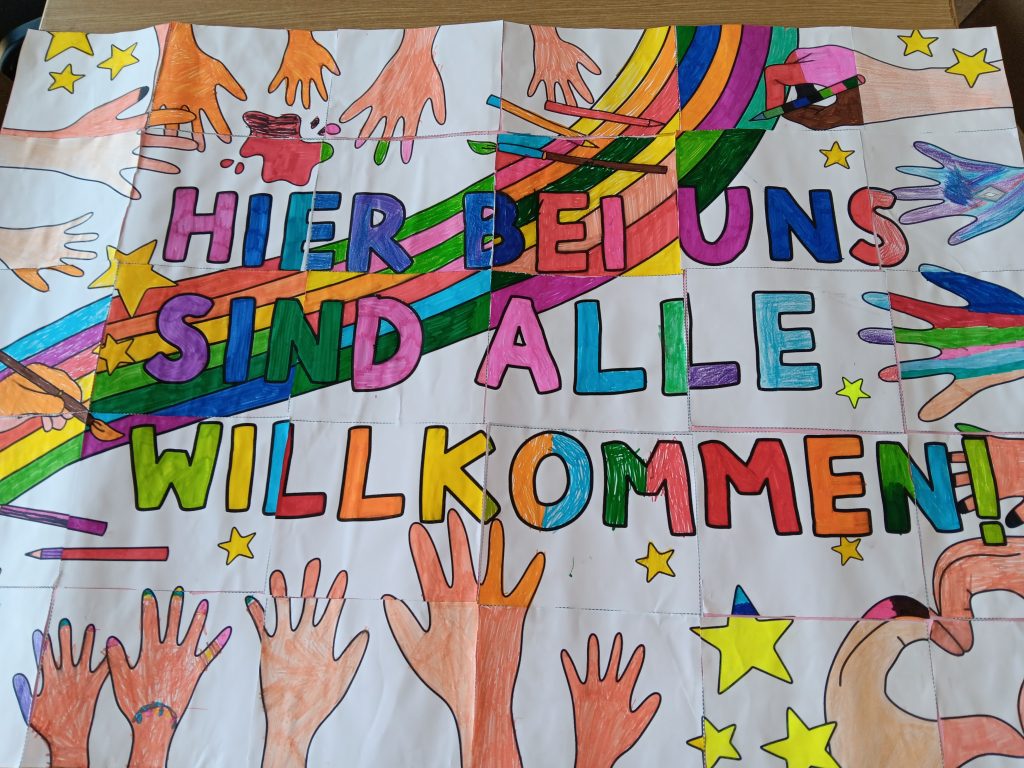 HIER BEI UNS
SIND ALLE
WILLKOMMEN!